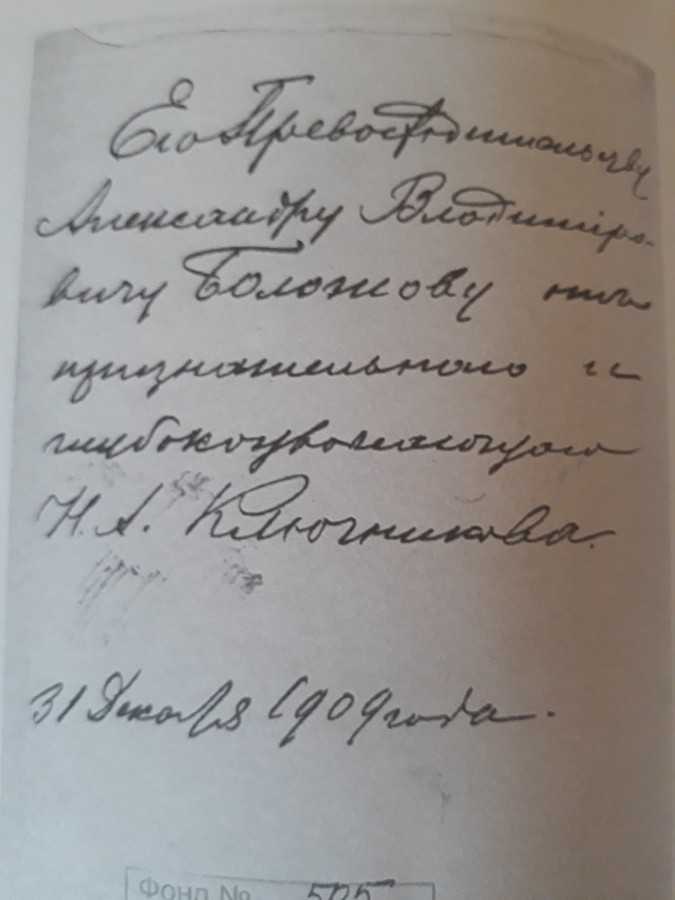 Его Превосходительству
Александру Владимiро-
вичу Болотову отъ
признательнаго и
глубокоуважающаго
Н. А. Ключникова.
31 Декабря 1909 года.
Фонд № 505